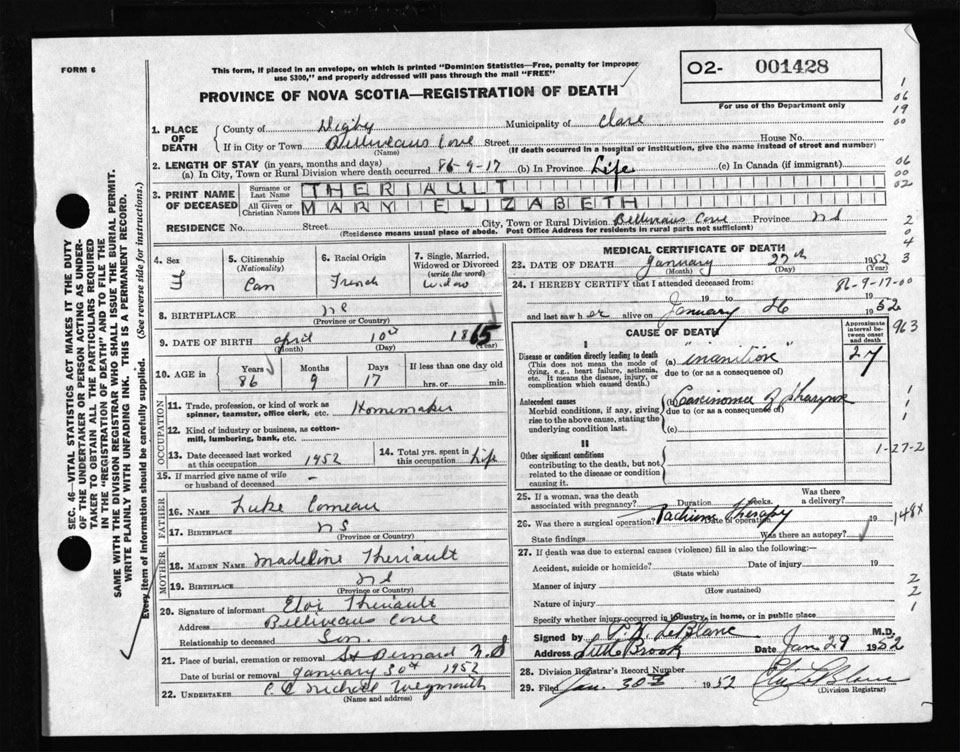 FORM 6
This form, if placed in an envelope, on which is printed "Dominion Statistics—Free, penalty for improper
use $300," and properly addressed will pass through the mail "FREE"
PROVINCE OF NOVA SCOTIA—REGISTRATION OF DEATH
O2- 001428
For use of the Department only
1. PLACE OF DEATH
County of Digby Municipality of Clare
If in City or Town Belliveaus Cove Street House No.
(Name) (If death occurred in a hospital or institution, give the name instead of street and number)
2. LENGTH OF STAY (in years, months and days)
(a) In City, Town or Rural Division where death occurred 86-9-17 (b) In Province Life (c) In Canada (if immigrant)
3. PRINT NAME OF DECEASED
Surname or Last Name THERIAULT
All Given or Christian Names MARY ELIZABETH
RESIDENCE No. Street City, Town or Rural Division Belliveaus Cove Province N S
(Residence means usual place of abode. Post Office Address for residents in rural parts not sufficient)
4. Sex F
5. Citizenship (Nationality) Can
6. Racial Origin French
7. Single, Married, Widowed or Divorced (write the word) Widow
8. BIRTHPLACE N S
(Province or Country)
9. DATE OF BIRTH April 10th 1865
(Month) (Day) (Year)
10. AGE in Years Months Days If less than one day old
86 9 17 hrs. or min.
OCCUPATION
11. Trade, profession, or kind of work as spinner, teamster, office clerk, etc. Homemaker
12. Kind of industry or business, as cotton-mill, lumbering, bank, etc.
13. Date deceased last worked at this occupation 1952
14. Total yrs. spent in this occupation Life
15. If married give name of wife or husband of deceased –
FATHER
16. NAME Luke Comeau
17. BIRTHPLACE N S
(Province or Country)
MOTHER
18. MAIDEN NAME Madeline Theriault
19. BIRTHPLACE N S
(Province or Country)
20. Signature of informant Eloi Theriault
Address Belliveaus Cove
Relationship to deceased Son.
21. Place of burial, cremation or removal St Bernard N.S
Date of burial or removal January 30th 1952
22. UNDERTAKER Weymouth
(Name and address)
MEDICAL CERTIFICATE OF DEATH
23. DATE OF DEATH January 27th 1952
(Month) (Day) (Year)
24. I HEREBY CERTIFY that I attended deceased from: 86-9-17-00
19 to 19
and last saw her alive on January 26 1952
CAUSE OF DEATH
Approximate interval between onset and death
I
Disease or condition directly leading to death
(This does not mean the mode of dying, e.g., heart failure, asthenia, etc. It means the disease, injury, or complication which caused death.)
(a) "inanition"
due to (or as a consequence of)
Antecedent causes
Morbid conditions, if any, giving rise to the above cause, stating the underlying condition last.
(b) carcinoma of pharynx
due to (or as a consequence of)
(c)
II
Other significant conditions
contributing to the death, but not related to the disease or condition causing it.
25. If a woman, was the death associated with pregnancy? Duration weeks. Was there a delivery?
26. Was there a surgical operation? Date of operation 19
Radium therapy
State findings Was there an autopsy?
27. If death was due to external causes (violence) fill in also the following:—
Accident, suicide or homicide? Date of injury 19
(State which)
Manner of injury
(How sustained)
Nature of injury
Specify whether injury occurred in industry, in home, or in public place
Signed by LeBlanc M.D.
Address Little Brook Date Jan 29 1952
28. Division Registrar's Record Number
29. Filed Jan. 30th 1952 LeBlanc
(Division Registrar)
SEC. 46—VITAL STATISTICS ACT MAKES IT THE DUTY
OF THE UNDERTAKER OR PERSON ACTING AS UNDER-
TAKER TO OBTAIN ALL THE PARTICULARS REQUIRED
IN THE "REGISTRATION OF DEATH" AND TO FILE THE
SAME WITH THE DIVISION REGISTRAR WHO SHALL ISSUE THE BURIAL PERMIT.
WRITE PLAINLY WITH UNFADING INK. THIS IS A PERMANENT RECORD.
Every item of information should be carefully supplied. (See reverse side for instructions.)
1
06
19
00
06
00
02
2
0
4
3
963
1
1
1
1-27-2
148x
2
2
1